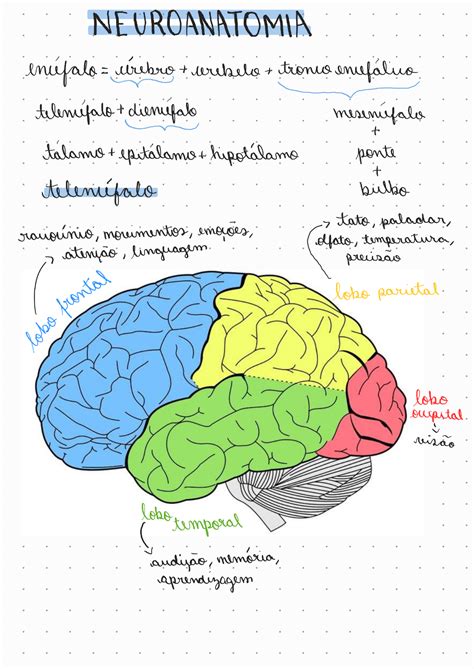 NEUROANATOMIA
encéfalo = cérebro + cerebelo + tronco encefálico
telencéfalo + diencéfalo
mesencéfalo
+
ponte
+
bulbo
tálamo + epitálamo + hipotálamo
telencéfalo
raciocínio, movimentos, emoções,
atenção, linguagem
tato, paladar,
olfato, temperatura,
precisão
lobo frontal
lobo parietal
lobo
occipital
visão
lobo
temporal
audição, memória,
aprendizagem